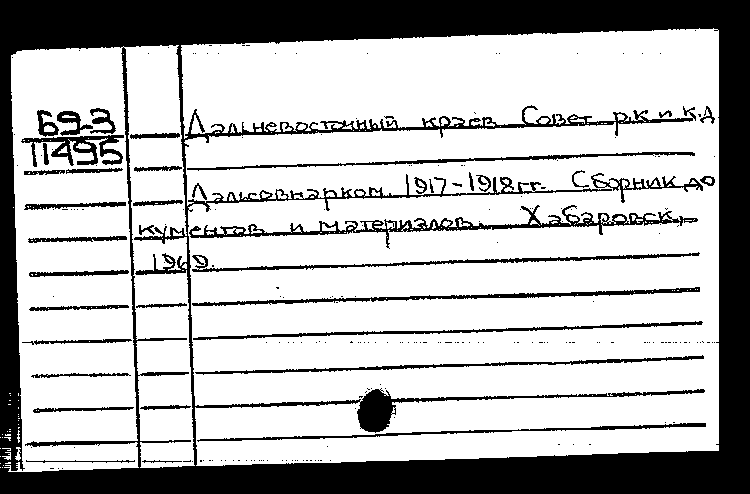 Б9-3
11495
Дальневосточный краев Совет р.к и к.д
Дальсовнарком. 1917-1918гг. Сборник до
кументов и материалов. Хабаровск,
1969.